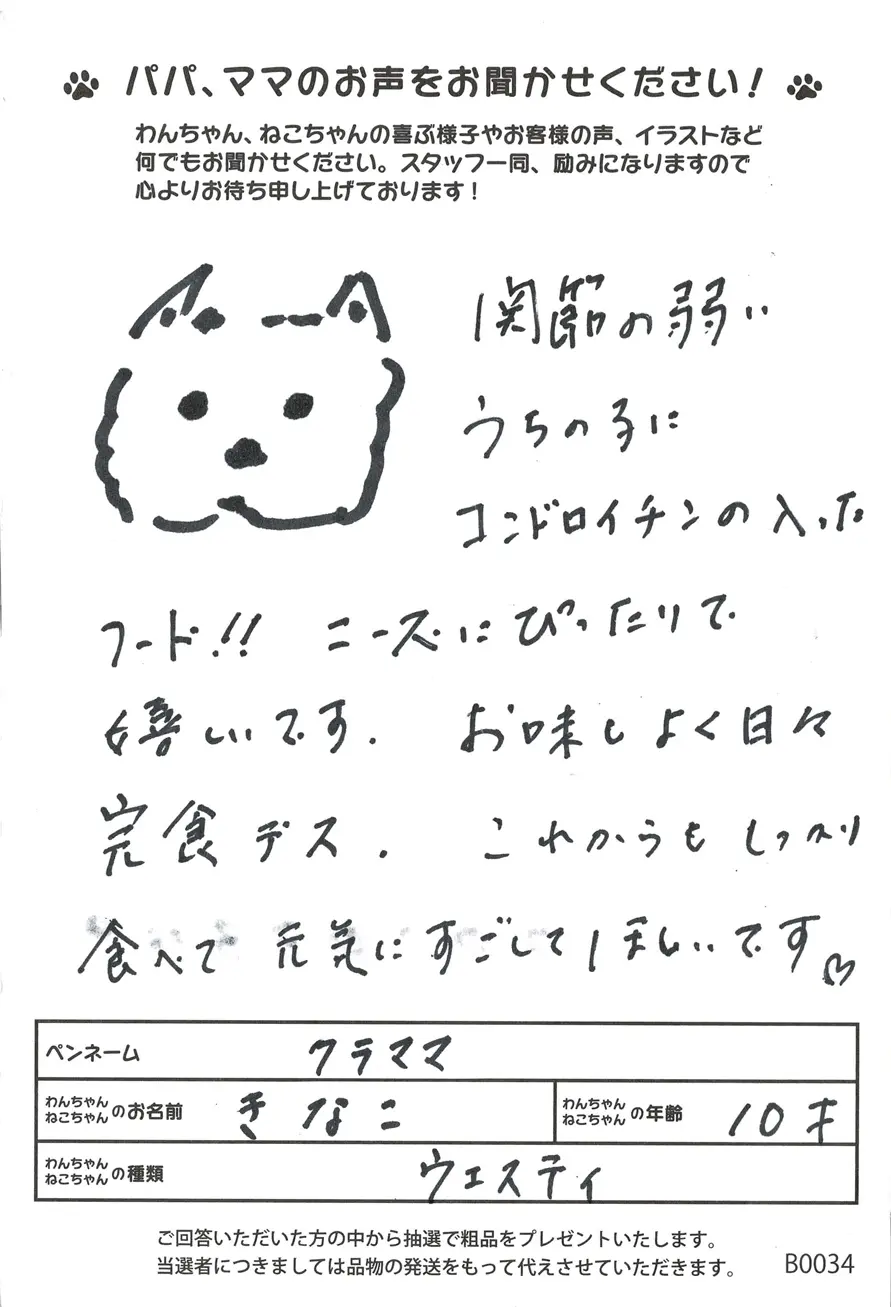 パパ、ママのお声をお聞かせください!
わんちゃん、ねこちゃんの喜ぶ様子やお客様の声、イラストなど
何でもお聞かせください。スタッフ一同、励みになりますので
心よりお待ち申し上げております!
関節の弱い
うちの子に
コンドロイチンの入った
フード!! ニーズにぴったりで
嬉しいです. お味しよく日々
完食デス. これからもしっかり
食べて元気にすごしてほしいです♡
ペンネーム クラママ
わんちゃん ねこちゃん のお名前 きなこ わんちゃん ねこちゃん の年齢 10才
わんちゃん ねこちゃん の種類 ウエスティ
ご回答いただいた方の中から抽選で粗品をプレゼントいたします。
当選者につきましては品物の発送をもって代えさせていただきます。 B0034